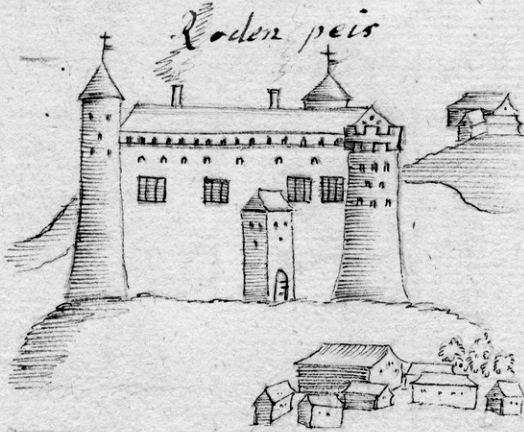 Roden peis